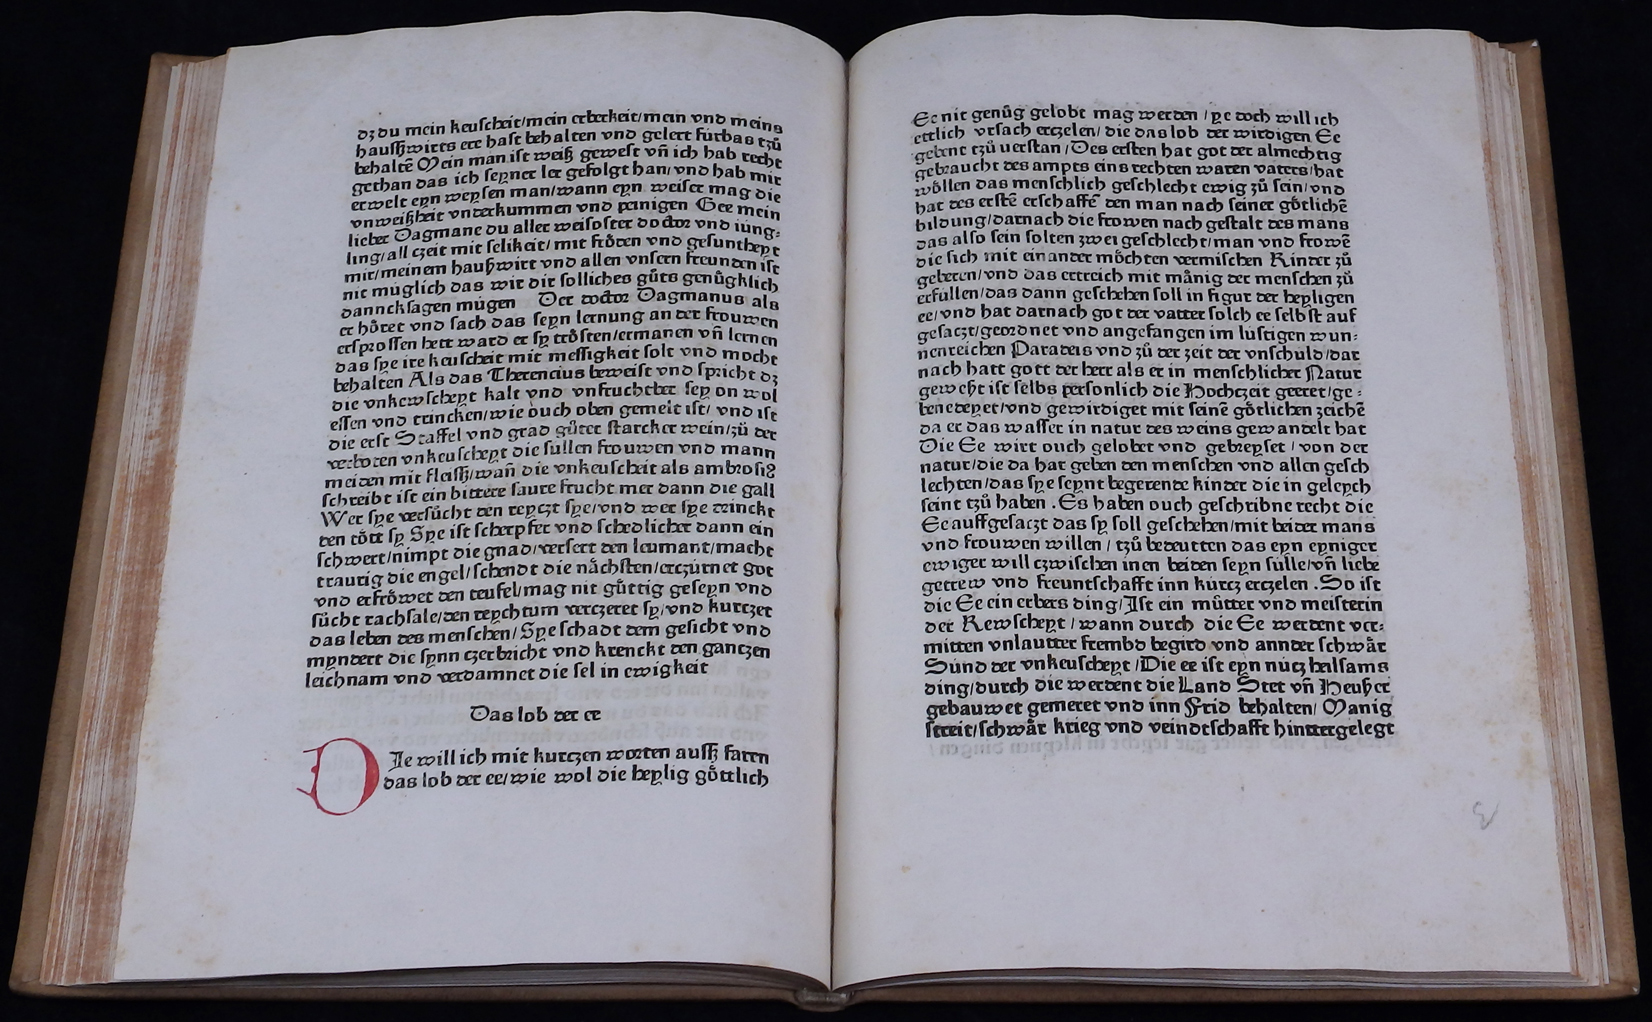 dz du mein keuscheit/mein erberkeit/mein vnd meins
haußwirts ere hast behalten vnd gelert fúrbas tzů
behaltẽ Mein man ist weiß gewest vñ ich hab recht
gethan das ich seyner ler gefolgt han/vnd hab mir
erwelt eyn weysen man/wann eyn weiser mag die
vnweißheit vnderkummen vnd peinigen Gee mein
lieber Dagmane du aller weisoster doctor vnd iúng⸗
ling/all czeit mit selikeit/mit frőden vnd gesuntheyt
mir/meinem haußwirt vnd allen vnsern freunden ist
nit múglich das wir dir solliches gůts genůgklich
dancksagen múgen Der doctor Dagmanus als
er hőret vnd sach das seyn lernung an der frouwen
ersprossen hett ward er sy trősten/ermanen vñ lernen
das sye ire keuscheit mit messigkeit solt vnd mocht
behalten Als das Therencius beweist vnd spricht dz
die vnkewscheyt kalt vnd vnfruchtber sey on wol
essen vnd trincken/wie ouch oben gemelt ist/ vnd ist
die erst Staffel vnd grad gůter starcker wein/zů der
verboten vnkeuscheyt die súllen frouwen vnd mann
meiden mit fleissz/wañ die vnkeuscheit als ambrosiꝰ
schreibt ist ein bittere saure frucht mer dann die gall
Wer sye versůcht den reyczt sye/vnd wer sye trinckt
den tőtt sy Sye ist scherpfer vnd schedlicher dann ein
schwert/nimpt die gnad/versert den leumant/macht
traurig die engel/schendt die nächsten/erczúrnet got
vnd erfrőwet den teufel/mag nit gůttig geseyn vnd
sůcht rachsale/den reychtum verczeret sy/vnd kurczet
das leben des menschen/Sye schadt dem gesicht vnd
myndert die synn czerbricht vnd krenckt den ganczen
leichnam vnd verdamnet die sel in ewigkeit
Das lob der ee
DIe will ich mit kurczen worten aussz faren
das lob der ee/wie wol die heylig gőttlich
Ee nit genůg gelobt mag werden /ye doch will ich
ettlich vrsach erczelen/die das lob der wirdigen Ee
gebent tzů uerstan /Des ersten hat got der almechtig
gebraucht des ampts eins rechten waren vaters/hat
wőllen das menschlich geschlecht ewig zů sein/vnd
hat des erstẽ erschaffẽ den man nach seiner gőtlichẽ
bildung/darnach die frowen nach gestalt des mans
das also sein solten zwei geschlecht/man vnd frowẽ
die sich mit einander mőchten vermischen Kinder zů
geberen/vnd das ertreich mit mänig der menschen zů
erfúllen/das dann geschehen soll in figur der heyligen
ee/vnd hat darnach got der vatter solch ee selbst auf
gesaczt/geordnet vnd angefangen im lustigen wun⸗
nenreichen Paradeis vnd zů der zeit der vnschuld/dar
nach hatt gott der herr als er in menschlicher Natur
geweßt ist selbs persőnlich die Hochczeit geeret/ge⸗
benedeyet/vnd gewirdiget mit seinẽ gőtlichen zeichẽ
da er das wasser in natur des weins gewandelt hat
Die Ee wirt ouch gelobet vnd gebreyset /von der
natur/die da hat geben den menschen vnd allen gesch
lechten/das sye seynt begerende kinder die in geleych
seint tzů haben .Es haben ouch geschribne recht die
Ee auffgesaczt das sy soll geschehen/mit beider mans
vnd frouwen willen /tzů bedeutten das eyn eyniger
ewiger will czwischen inen beiden seyn súlle/vñ liebe
getrew vnd freuntschafft inn kúrcz erczelen .So ist
die Ee ein erbers ding/Ist ein můtter vnd meisterin
der Kewscheyt /wann durch die Ee werdent ver⸗
mitten vnlautter frembd begird vnd annder schwär
Súnd der vnkeuscheyt /Die ee ist eyn nucz heilsams
ding/durch die werdent die Land Stet vñ Heußer
gebauwet gemeret vnd inn Frid behalten/Manig
streit/schwär krieg vnd veindtschafft hinttergelegt